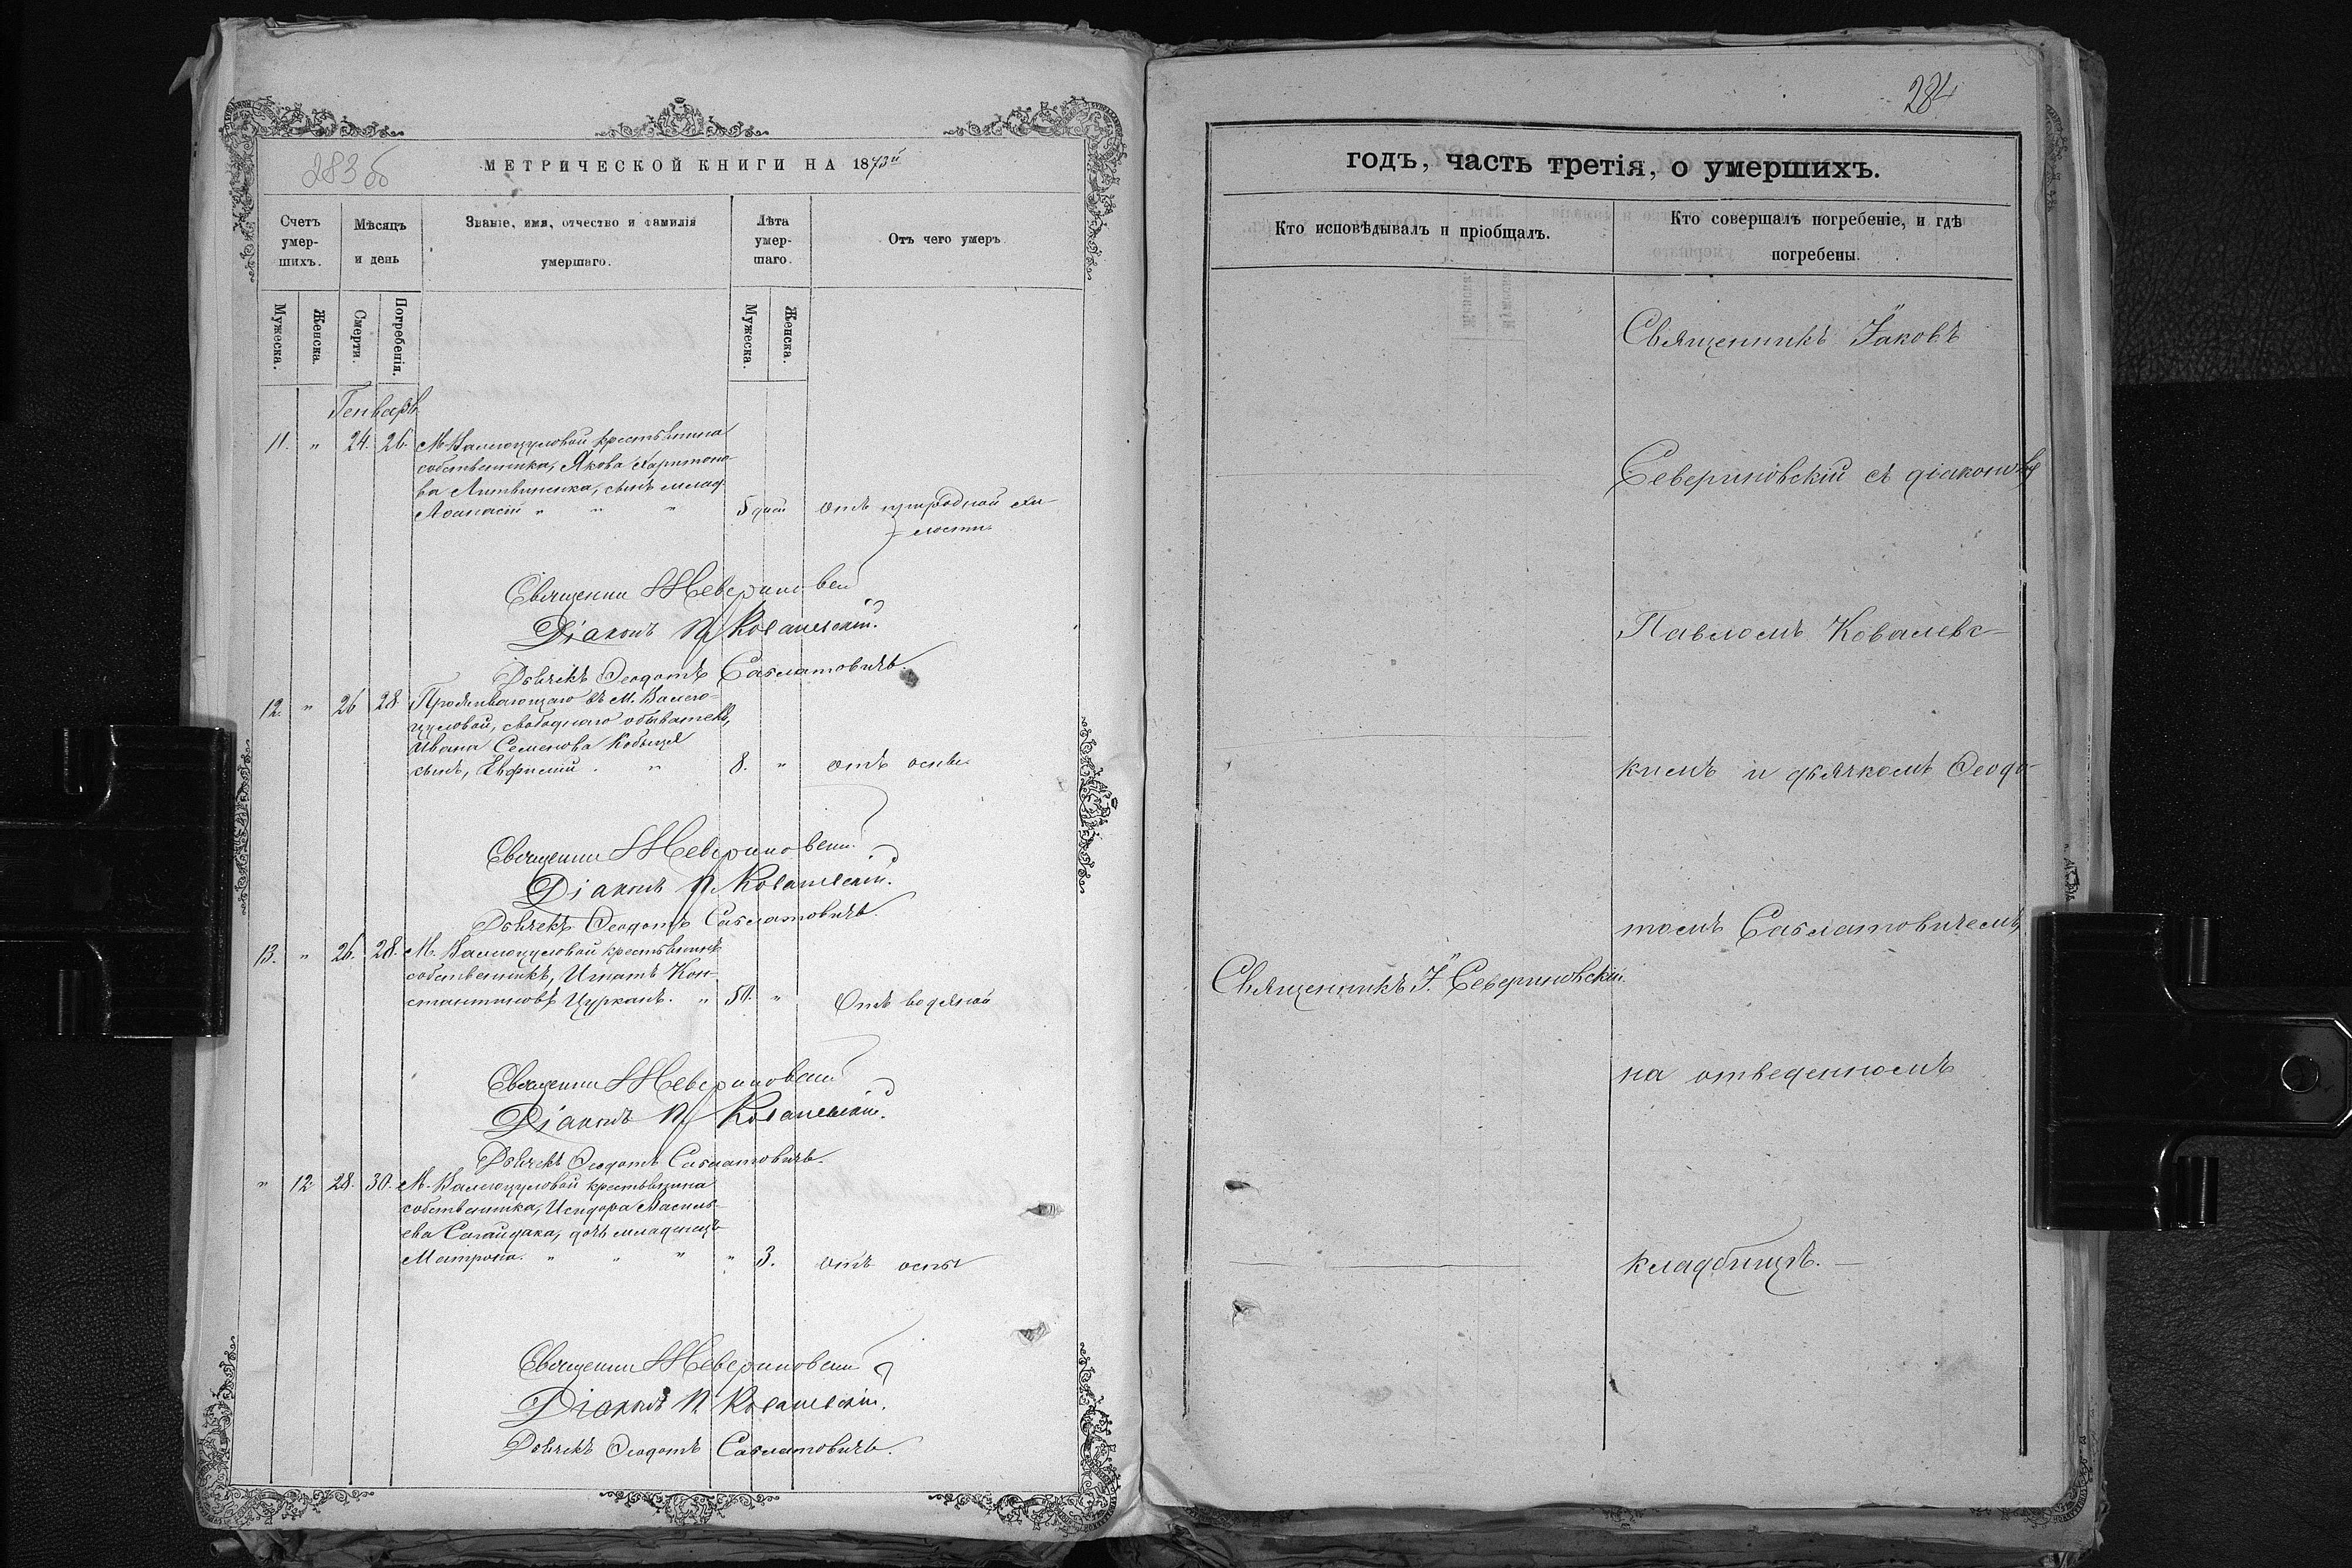 283 об
МЕТРИЧЕСКОЙ КНИГИ НА 1873й
Счетъ умер-шихъ.
Мѣсяцъ и день
Званіе, имя, отчество и фамилія умершаго.
Лѣта умер-шаго.
Отъ чего умеръ
Мужеска.
Женска.
Смерти.
Погребенія.
Мужеска.
Женска.
Генварь
11. " 24. 26. М. Валегоцуловой крестьянина
собственника, Якова Харитоно-
ва Литвиненка, сынъ млад.
Аѳанасій " " " 5 дней отъ природной хи
лости
Священникъ Севериновскій
Діаконъ П. Ковалевскій.
Дьячекъ Ѳеодотъ Саблатовичъ.
12. " 26 28 Проживающаго въ М. Валего-
цуловой, свободнаго обывателя,
Ивана Семенова Кобыця
сынъ, Евфимій. " 8. " отъ оспы
Священникъ Севериновскій
Діаконъ П. Ковалевскій.
Дьячекъ Ѳеодотъ Саблатовичъ.
13. " 26. 28. М. Валегоцуловой крестьянинъ
собственникъ, Игнатъ Кон-
стантиновъ Цурканъ. " 50. " Отъ водяной
Священникъ Севериновскій
Діаконъ П. Ковалевскій.
Дьячекъ Ѳеодотъ Саблатовичъ.
" 12 28. 30. М. Валегоцуловой крестьянина
собственника, Исидора Василь-
ева Сагайдака, дочь младенецъ
Матрона. " " " " 3. отъ оспы
Священникъ Севериновскій
Діаконъ П. Ковалевскій.
Дьячекъ Ѳеодотъ Саблатовичъ.
284
годъ, часть третія, о умершихъ.
Кто исповѣдывалъ и пріобщалъ.
Кто совершалъ погребеніе, и гдѣ
погребены.
Священникъ Іаковъ
Севериновскій съ діакономъ
Павломъ Ковалевс-
кимъ и дьячкомъ Ѳеодо-
томъ Саблатовичемъ
Священникъ І. Севериновскій.
на отведенномъ
кладбищѣ.